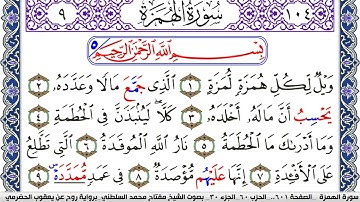 ٩ سُورَةُ الْهُمَزَةِ ١٠٤
بِسْمِ اللَّهِ الرَّحْمَٰنِ الرَّحِيمِ
وَيْلٌ لِكُلِّ هُمَزَةٍ لُمَزَةٍ ١ الَّذِي جَمَّعَ مَالًا وَعَدَّدَهُ ٢
يَحْسِبُ أَنَّ مَالَهُ أَخْلَدَهُ ٣ كَلَّا لَيُنْبَذَنَّ فِي الْحُطَمَةِ ٤
وَمَا أَدْرَىٰكَ مَا الْحُطَمَةُ ٥ نَارُ اللَّهِ الْمُوقَدَةُ ٦ الَّتِي تَطَّلِعُ
عَلَى الْأَفْـِٔدَةِ ٧ إِنَّهَا عَلَيْهُم مُؤْصَدَةٌ ٨ فِي عَمَدٍ مُمَدَّدَةٍ ٩
سورة الهمزة الصفحة ٦٠١ .. الحزب ٦٠ .. الجزء ٣٠ .. بصوت الشيخ مفتاح محمد السلطني برواية روح عن يعقوب الحضرمي